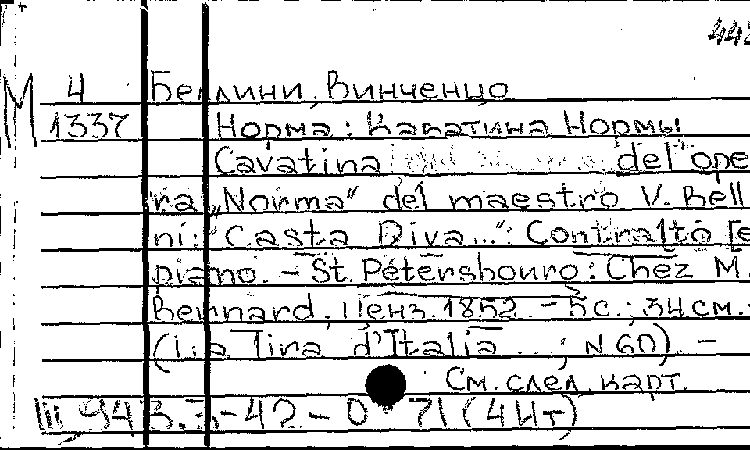 442
М 4 Беллини, Винченцо
1337 Норма: Каватина Нормы
Cavatina del'ope
ra „Norma“ del maestro V. Bell
ni: "Casta Diva...": Contralto [e
piano. - St. Pétersbourg: Chez M.
Bernard, Ценз. 1852. - 5 с.; 34 см. -
(La lira d'Italia ...; N 60). -
См. след. карт.
III 94 В.3-42-0 71 (4 Нт)